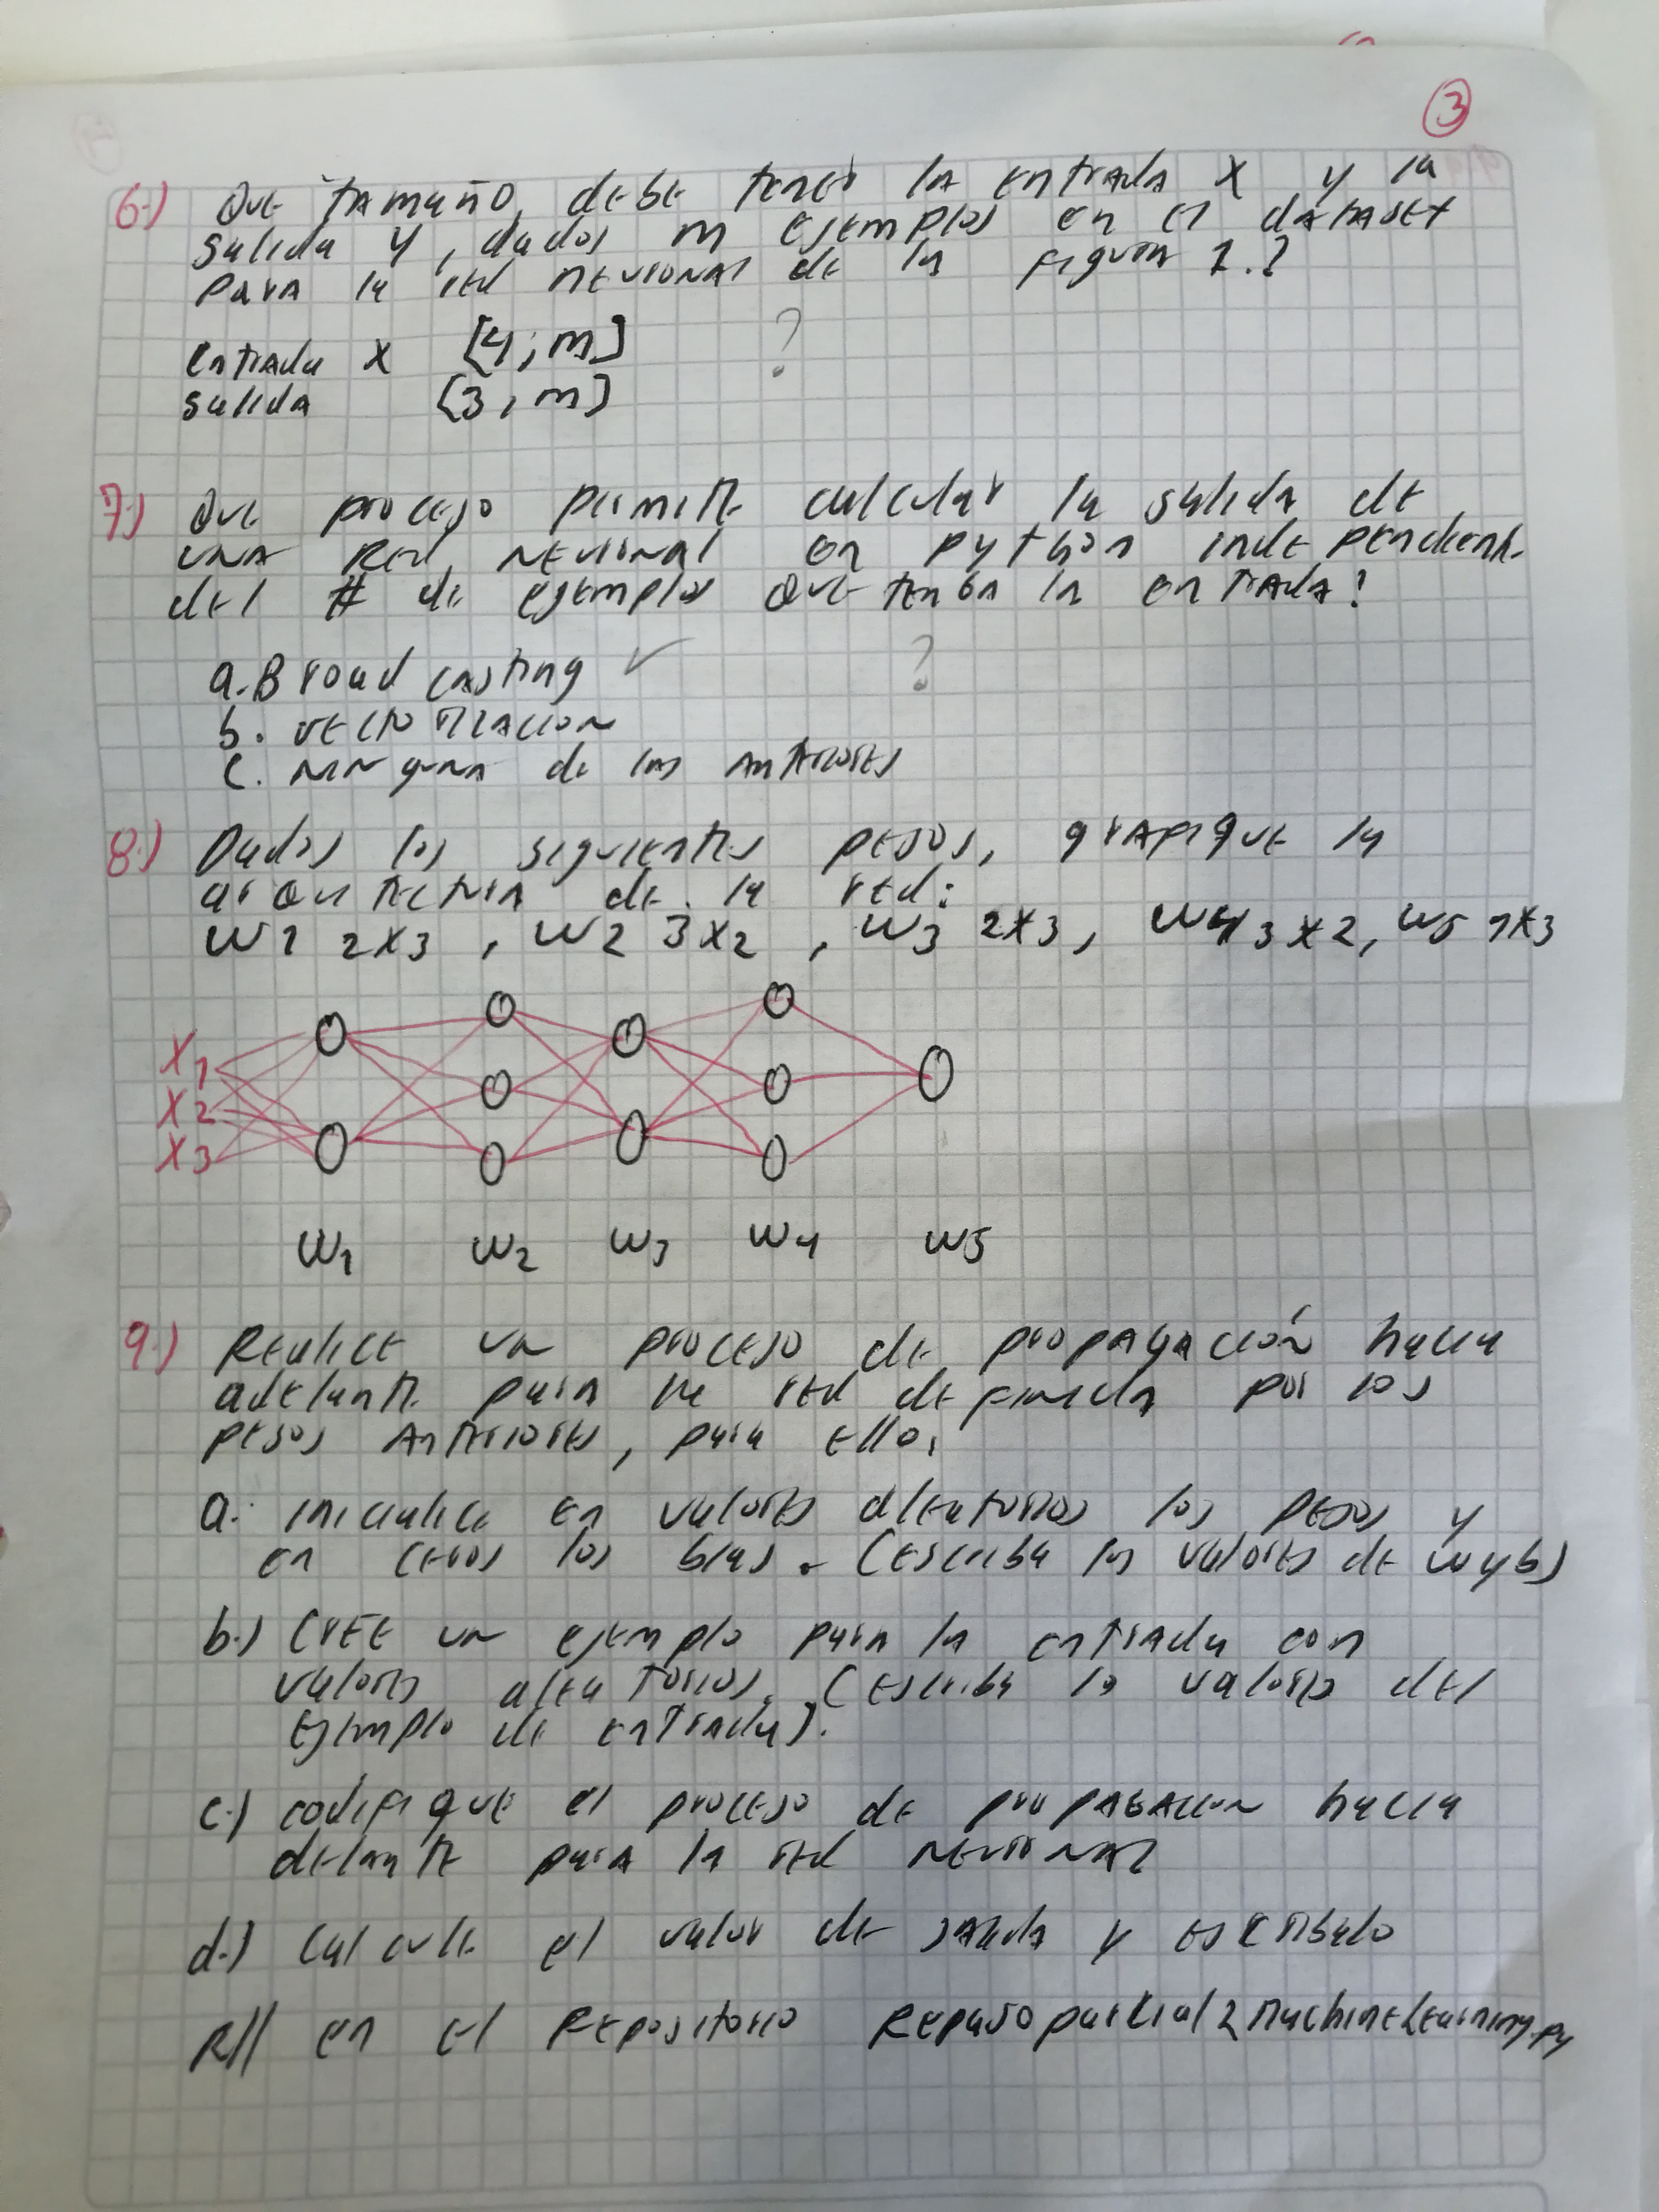 3
6.) Que tamaño debe tener la entrada X y la
salida Y, dados m ejemplos en el dataset
para la red neuronal de la figura 1.?
entrada X [4, m] ?
salida [3, m]
7.) Que proceso permite calcular la salida de
una Red neuronal en python independient.
del # de ejemplos que tenga la entrada?
a. Broad casting ✓ ?
b. vectorizacion
c. ninguna de las anteriores
8.) Dados los siguientes pesos, grafique la
arquitectura de la red:
W1 2x3, W2 3x2, W3 2x3, W4 3x2, W5 1x3
X1
X2
X3
W1 W2 W3 W4 W5
9.) Realice un proceso de propagación hacia
adelante para la red definida por los
pesos anteriores, para ello,
a. inicialice en valores aleatorios los pesos y
en ceros los bias. (escriba los valores de w y b)
b.) Cree un ejemplo para la entrada con
valores aleatorios. (escriba los valores del
ejemplo de entrada).
c.) codifique el proceso de propagacion hacia
delante para la red neuronal
d.) Calcule el valor de salida y escribalo
R// en el Repositorio Repasoparcial2MachineLearning.py